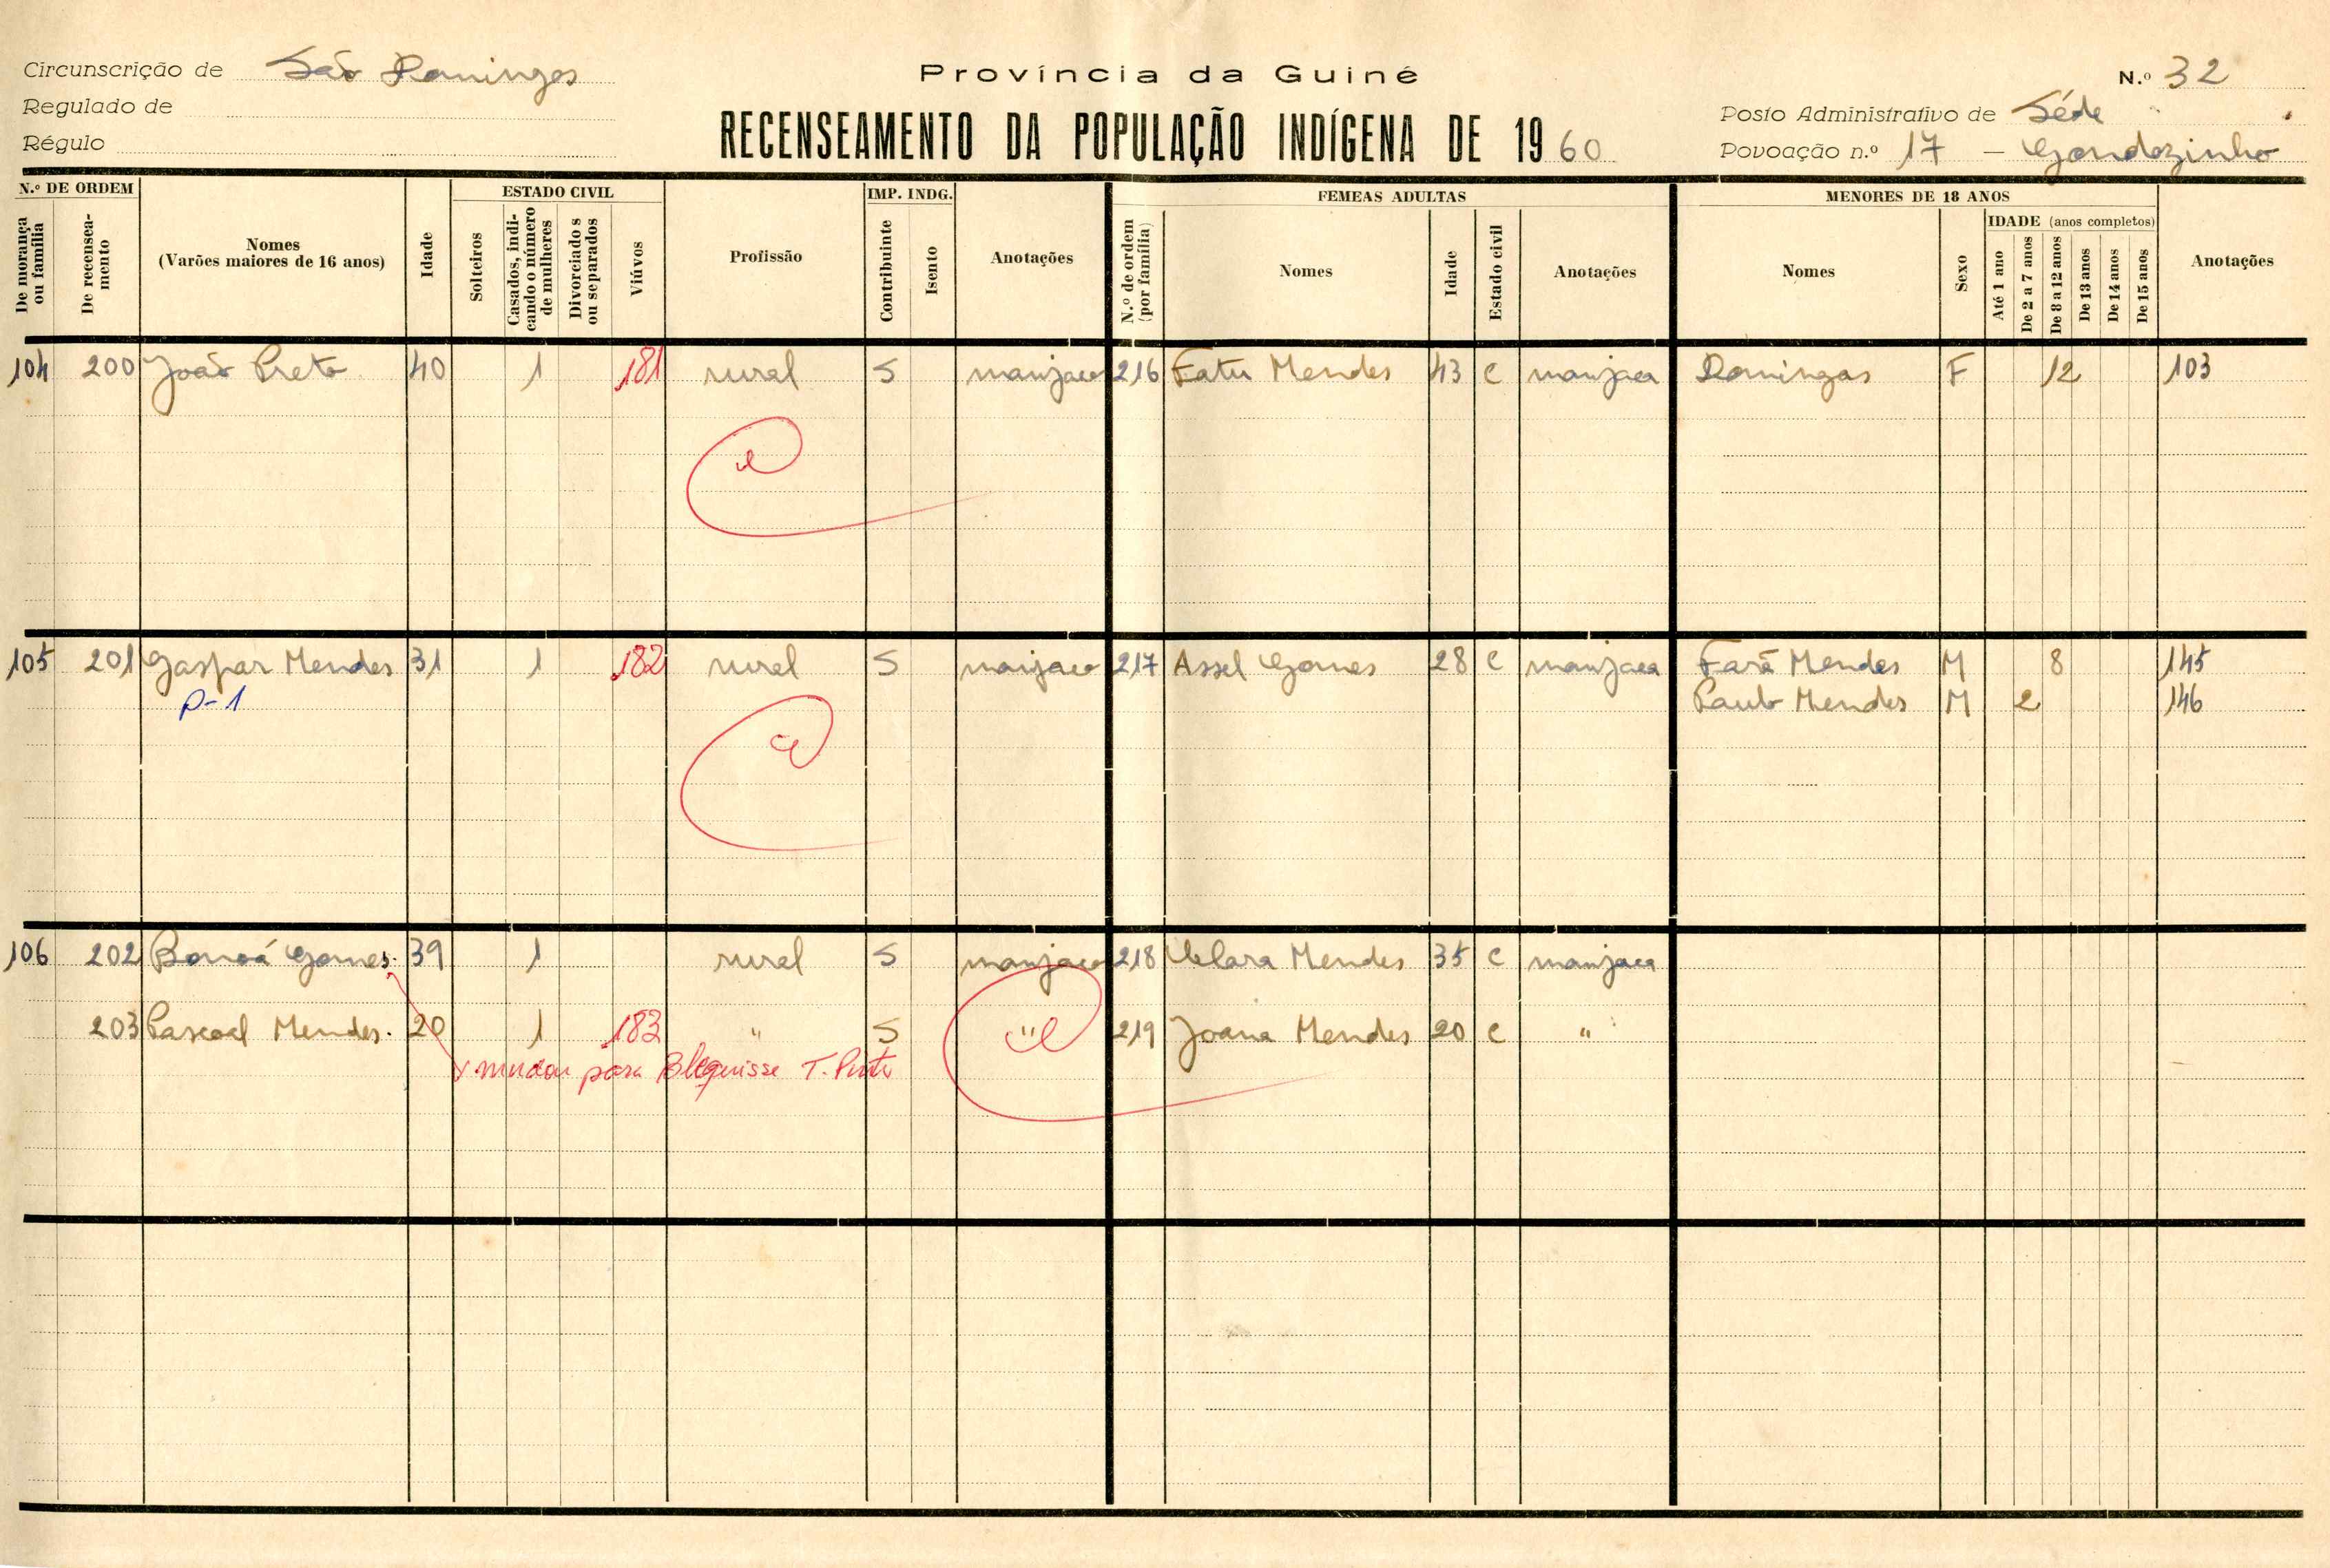 Província da Guiné
Circunscrição de São Domingos
N.º 32
Regulado de
Régulo
RECENSEAMENTO DA POPULAÇÃO INDÍGENA DE 1960
Posto Administrativo de Séde
Povoação n.º 17 –
N.º DE ORDEM
De morança ou família
De recensea-mento
Nomes
(Varões maiores de 16 anos)
Idade
ESTADO CIVIL
Solteiros
Casados, indi-cando o número de mulheres
Divorciados ou separados
Viúvos
Profissão
IMP. INDG.
Contribuinte
Isento
Anotações
FEMEAS ADULTAS
N.º de ordem (por família)
Nomes
Idade
Estado civil
Anotações
MENORES DE 18 ANOS
Nomes
Sexo
IDADE (anos completos)
Até 1 ano
De 2 a 7 anos
De 8 a 12 anos
De 13 anos
De 14 anos
De 15 anos
Anotações
104 200 João Preto 40 1 181 rural S manjaco 216 Fatu Mendes 43 C manjaca Domingas F 12 103
105 201 Gaspar Mendes 31 1 182 rural S manjaco 217 Assel Gomes 28 C manjaca Fará Mendes M 8 145
P-1 Paulo Mendes M 2 146
106 202 Gomes. 39 1 rural S manjaco 218 Clara Mendes 35 C manjaca
203 Pascoal Mendes. 20 1 183 " S " 219 Joana Mendes 20 C "
mudou para T. Pinto